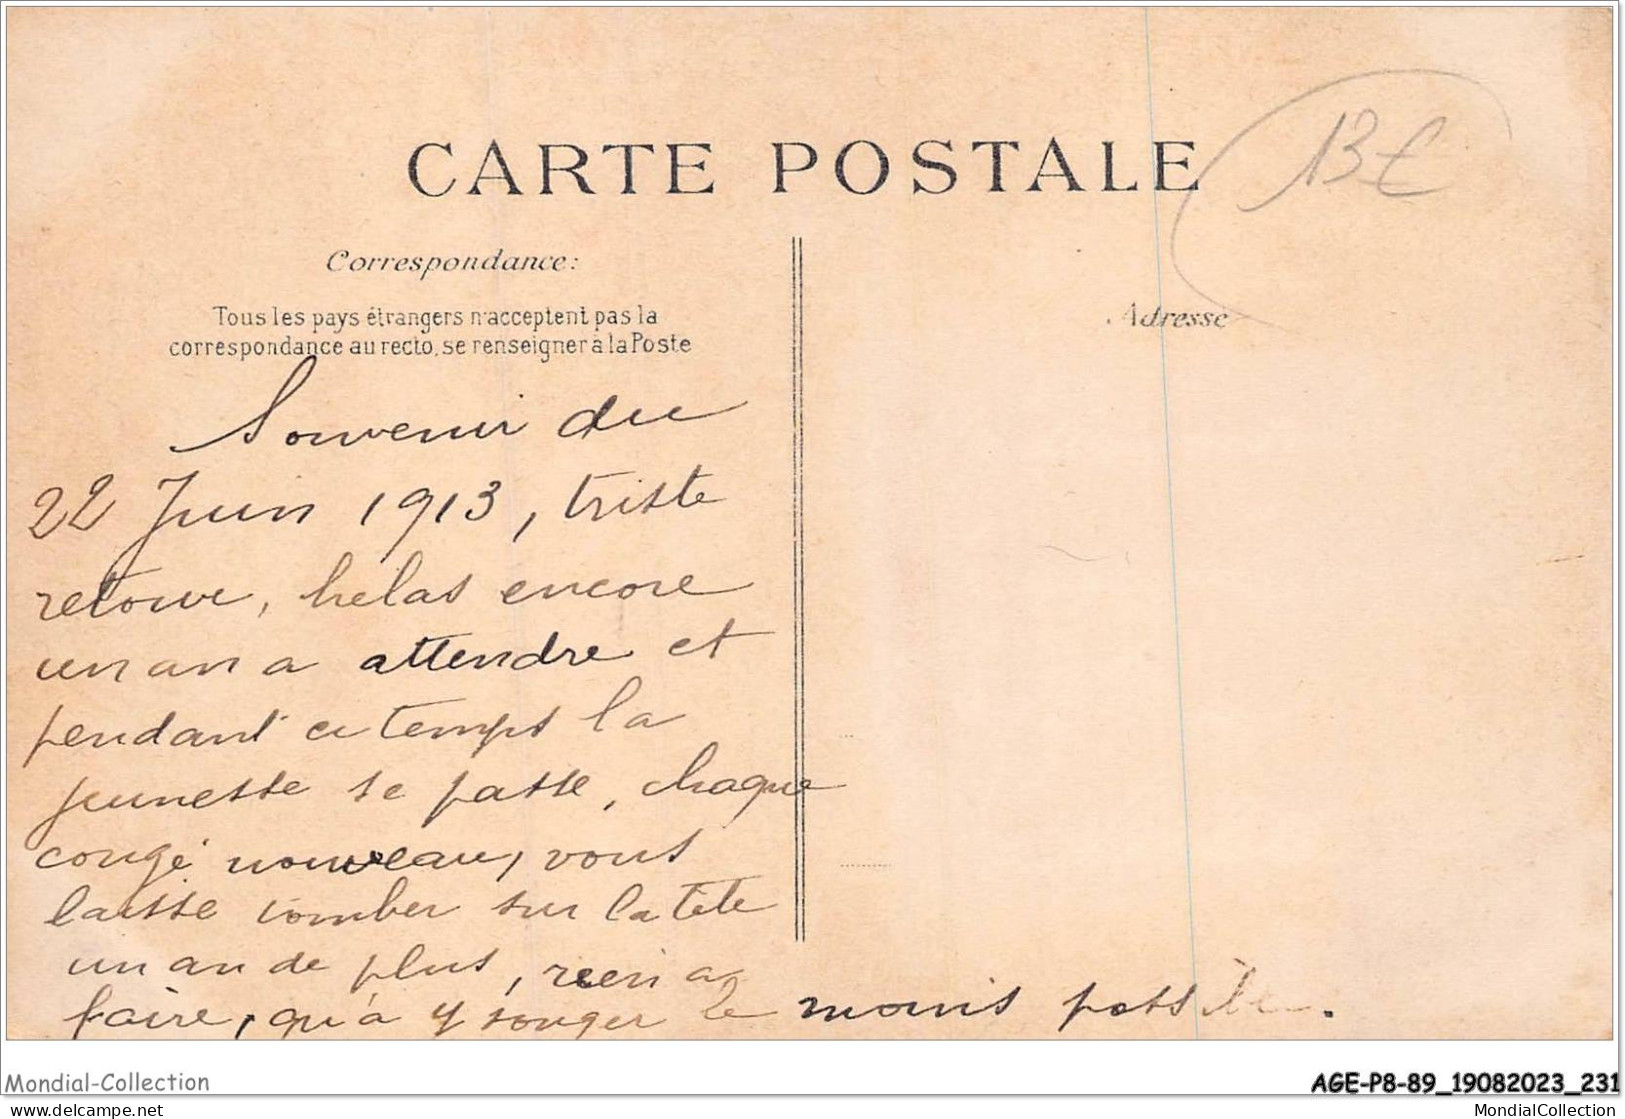 CARTE POSTALE
13€
Correspondance:
Tous les pays étrangers n'acceptent pas la
correspondance au recto, se renseigner à la Poste
Adresse
Souvenir du
22 Juin 1913, triste
retour, helas encore
un an a attendre et
pendant ce temps la
jeunesse se passe, chaque
congé nouveau, vous
laisse tomber sur la tete
un an de plus, rien a
faire, qu'a y songer le moins possible.
Mondial-Collection
AGE-P8-89_19082023_231
https://www.delcampe.net
MondialCollection